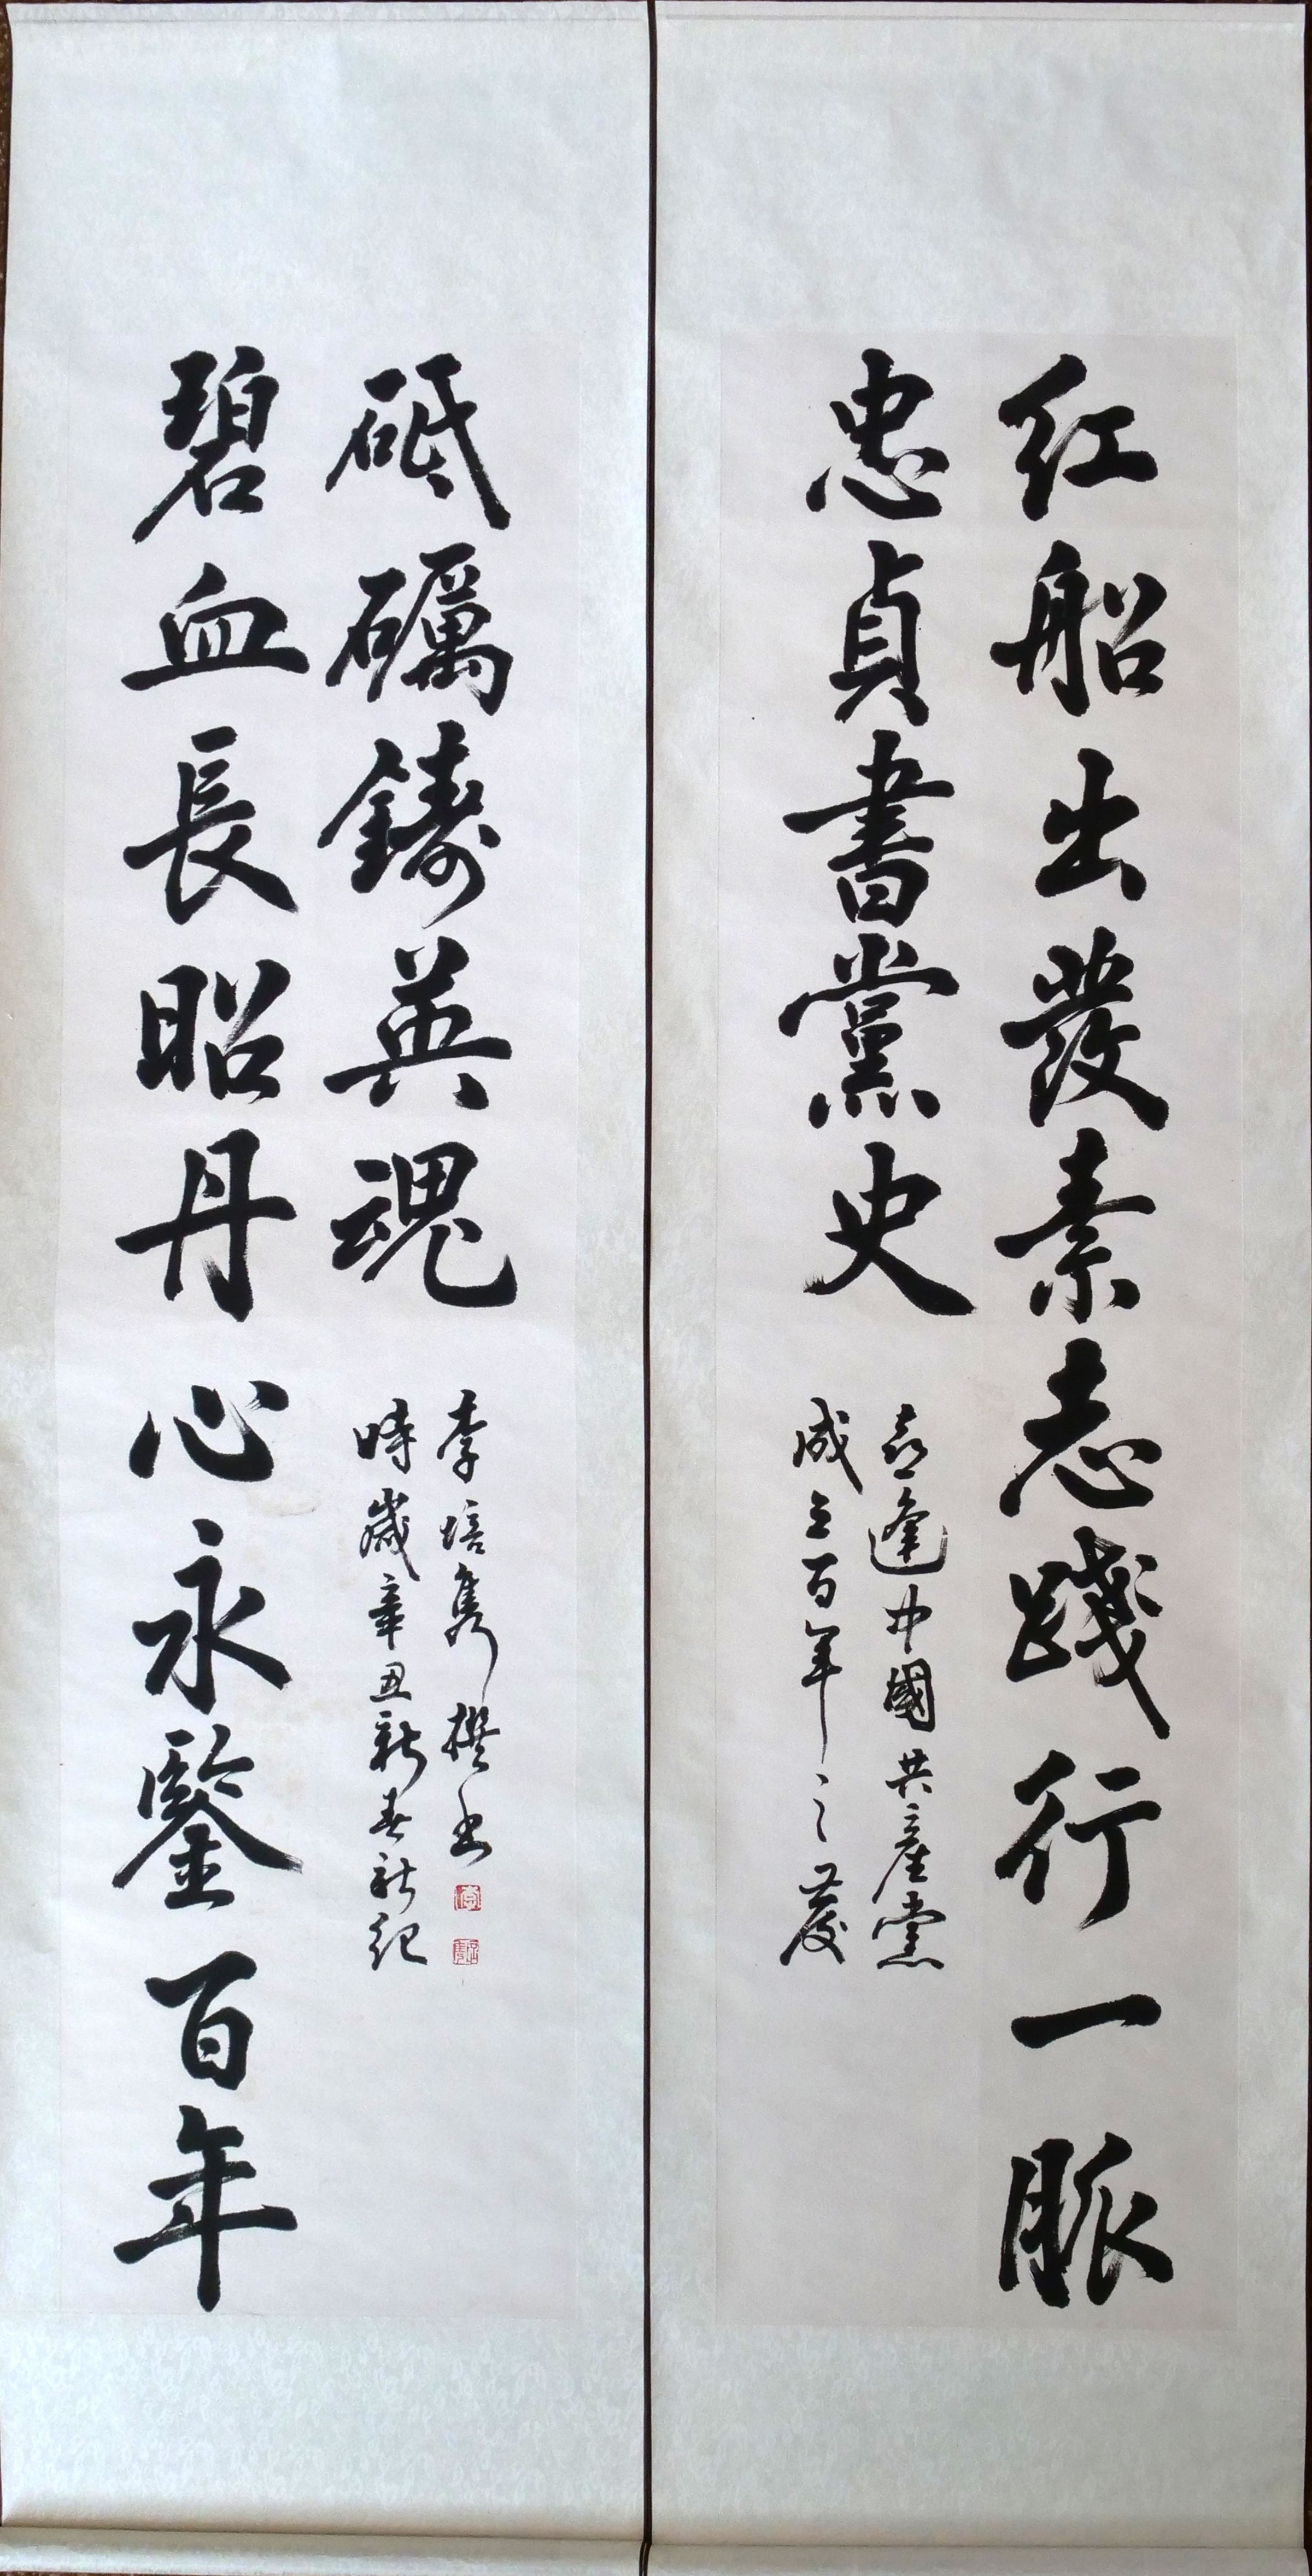 红船出發素志踐行一脈
忠貞書黨史
喜逢中國共產黨
成立百年之慶
碧血長昭丹心永鑒百年
砥礪鑄英魂
李培隽撰书
時歲辛丑新春新紀